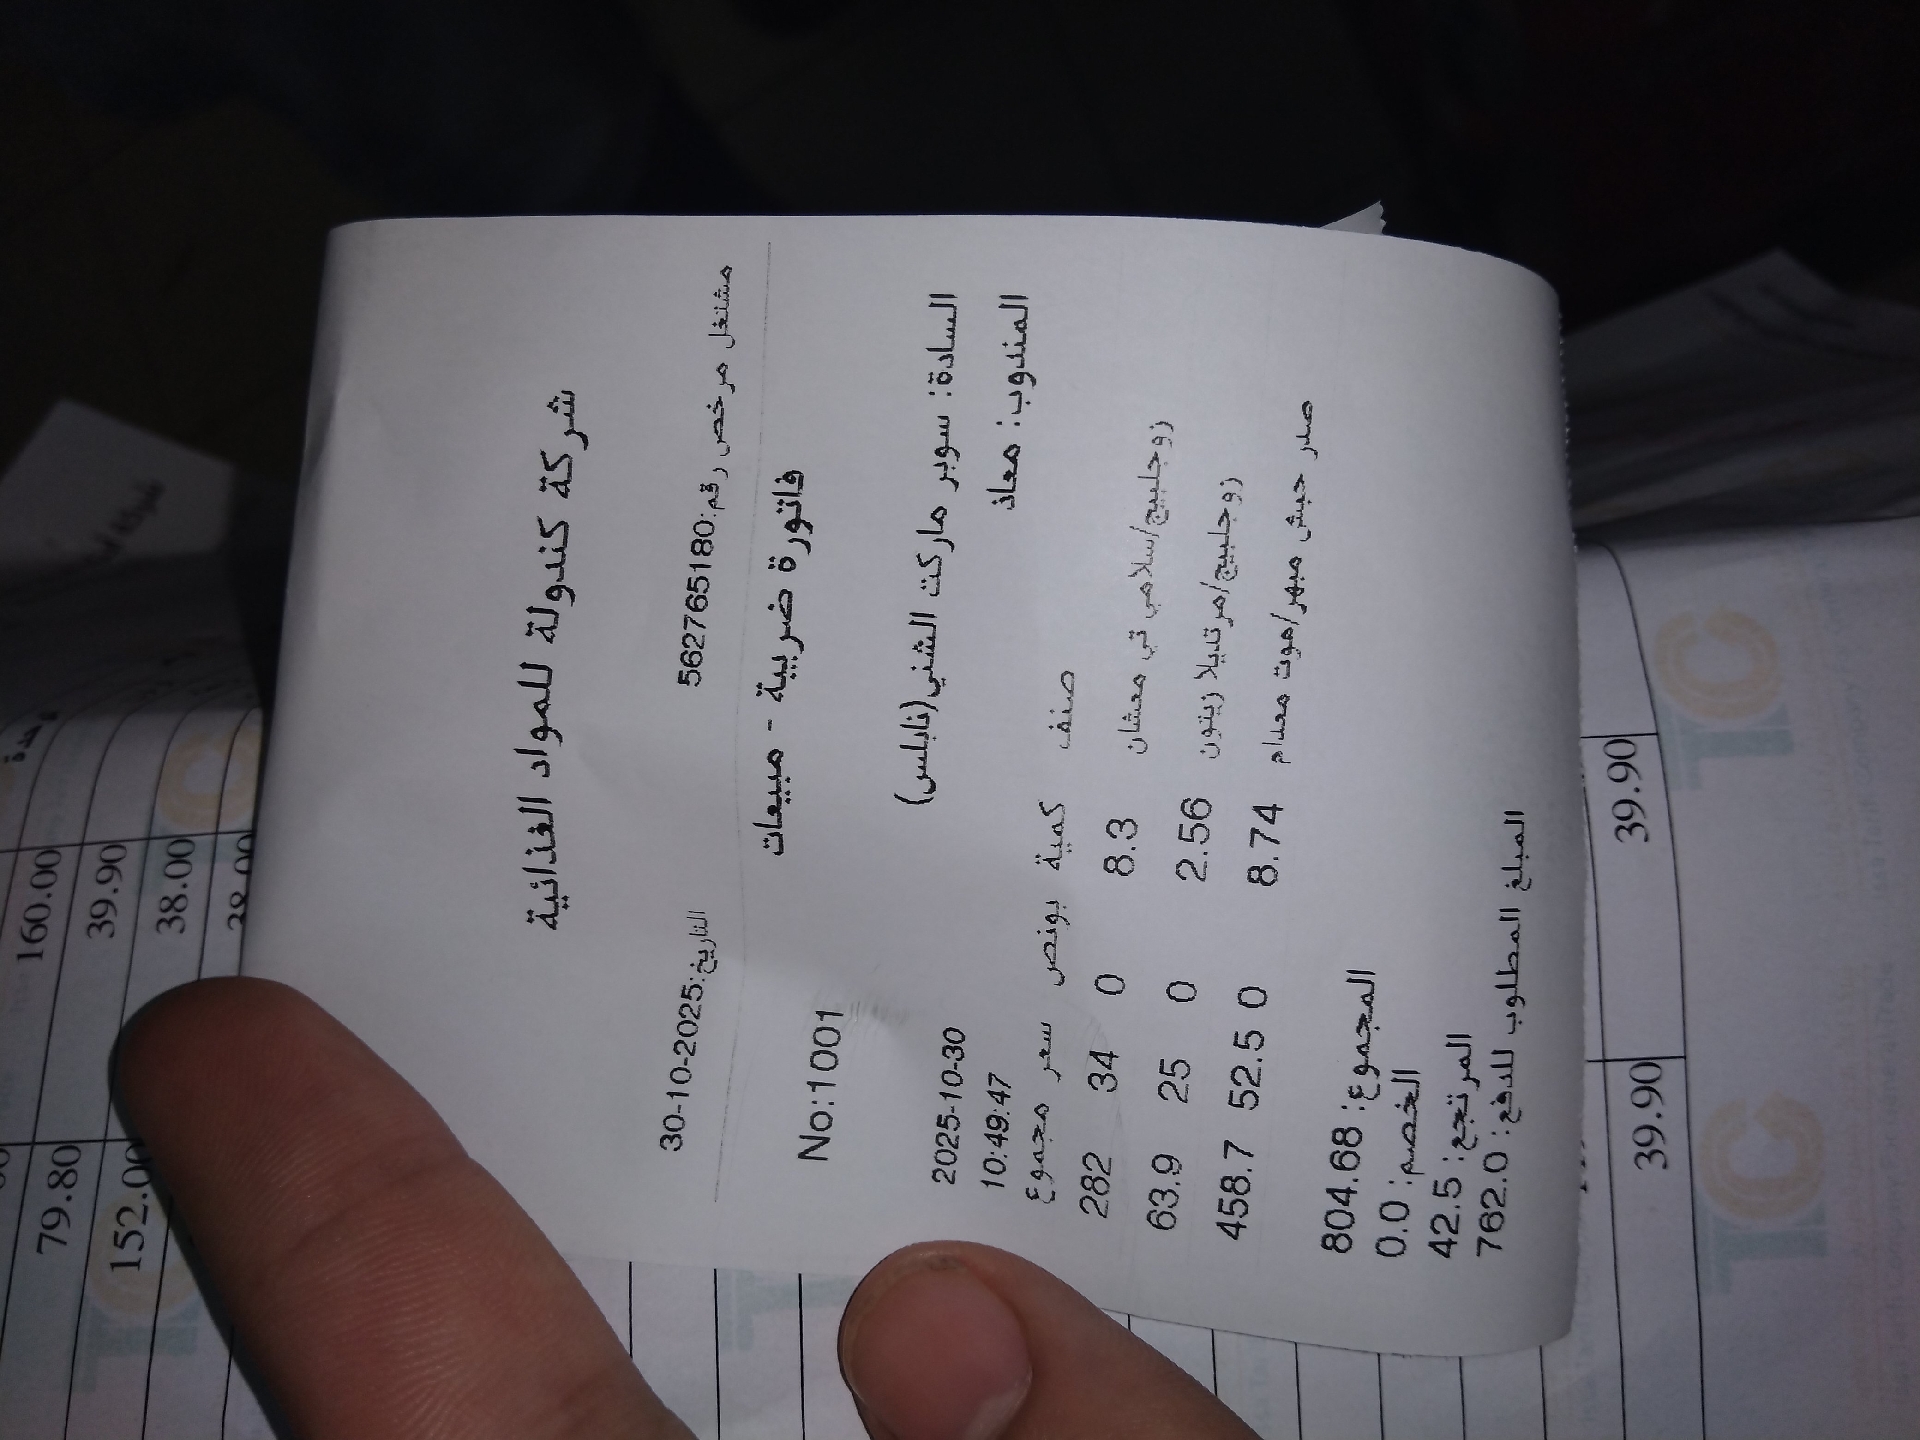 شركة كندولة للمواد الغذائية
مشتغل مرخص رقم:562765180 التاريخ:30-10-2025
فاتورة ضريبية - مبيعات No:1001
السادة: سوبر ماركت الشني(نابلس) 2025-10-30
المندوب: معاذ 10:49:47
صنف كمية بونص سعر مجموع
زوجلبيج/سلامي تي معشان 8.3 0 34 282
زوجلبيج/مرتديلا زيتون 2.56 0 25 63.9
صدر حبش مبهر/موت معدام 8.74 0 52.5 458.7
المجموع: 804.68
الخصم: 0.0
المرتجع: 42.5
المبلغ المطلوب للدفع: 762.0
160.00
39.90 79.80
38.00 152.00
38.00
39.90 39.90